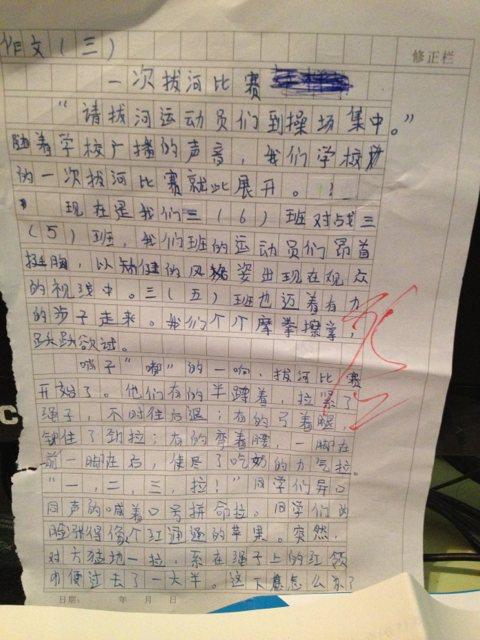 作文(三)
修正栏
一次拔河比赛
“请拔河运动员们到操场集中。”
随着学校广播的声音，我们学校的
的一次拔河比赛就此展开。
现在是我们三(6)班对战三
(5)班，我们班的运动员们昂首
挺胸，以矫健的风姿出现在观众
的视线中。三(五)班也迈着有力
的步子走来。我们个个摩拳擦掌，
跃跃欲试。
哨子“嘟”的一响，拔河比赛
开始了。他们有的半蹲着，拉紧了
绳子，不时往后退；有的弓着腿，
铆住了劲拉；有的弯着腰，一脚在
前一脚在后，使尽了吃奶的力气拉。
“一，二，三，拉！”同学们异口
同声的喊着口号拼命拉。同学们的
脸张得像个红通通的苹果。突然，
对方猛地一拉，系在绳子上的红领
巾便过去了一大半。这下应怎么办了
日期： 年 月 日